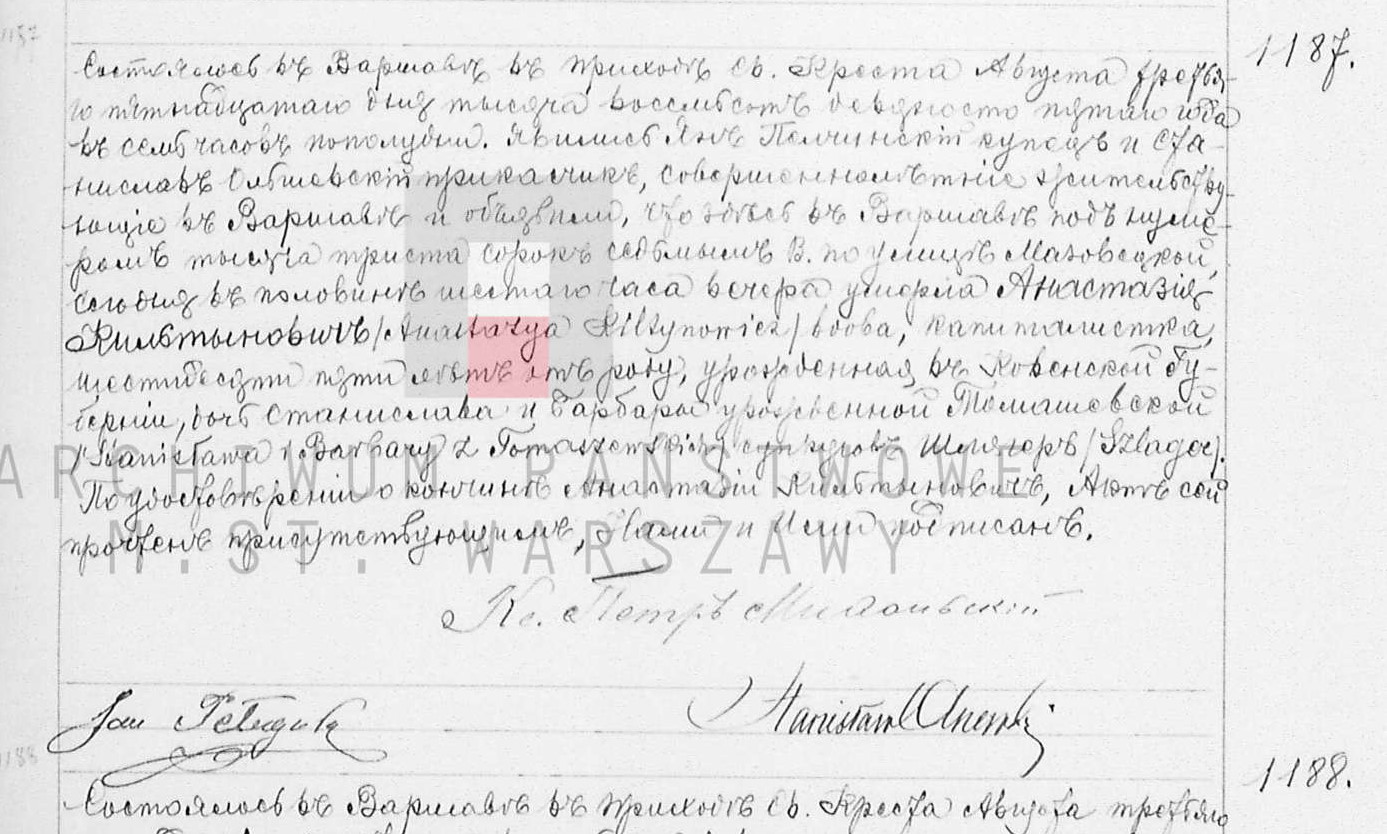 1187.
Состоялось въ Варшавѣ въ приходѣ Св. Креста Августа третья-
го пятнадцатаго дня тысяча восемьсотъ девяносто пятаго года
въ семь часовъ пополудни. Явились Янъ Пелчинскій купецъ и Ста-
ниславъ Ольшевскій прикасчикъ, совершеннолѣтніе жительству-
ющіе въ Варшавѣ и объявили, что здѣсь въ Варшавѣ подъ нуме-
ромъ тысяча триста сорокъ седьмымъ В. по улицѣ Мазовецкой,
сего дня въ половинѣ шестаго часа вечера умерла Анастазія
Кильтыновичъ /Anastazya Kiltynowicz/ вдова, капиталистка,
шестидесяти пяти лѣтъ отъ роду, урожденная въ Ковенской Гу-
берніи, дочь Станислава и Барбары урожденной Томашевской
/Stanisława i Barbary z Tomaszewskich/ супруговъ Шлягеръ /Szlager/.
По удостовѣреніи о кончинѣ Анастазіи Кильтыновичъ, Актъ сей
прочтенъ присутствующимъ, Нами и Ими подписанъ.
Кс. Петръ
Jan
Stanisław
1188.
Состоялось въ Варшавѣ въ приходѣ Св. Креста Августа третьяго
ARCHIWUM PAŃSTWOWE
M.ST. WARSZAWY